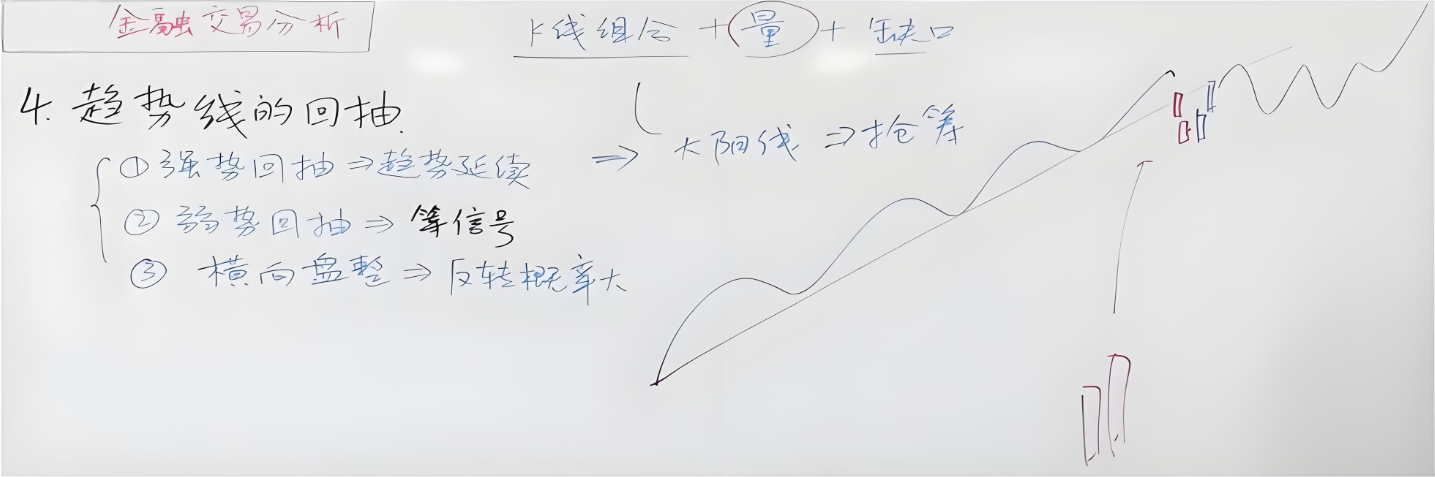 金融交易分析
K线组合+量+缺口
4.趋势线的回抽.
①强势回抽⇒趋势延续 ⇒ 大阳线⇒抢筹
②弱势回抽⇒等信号
③横向盘整⇒反转概率大